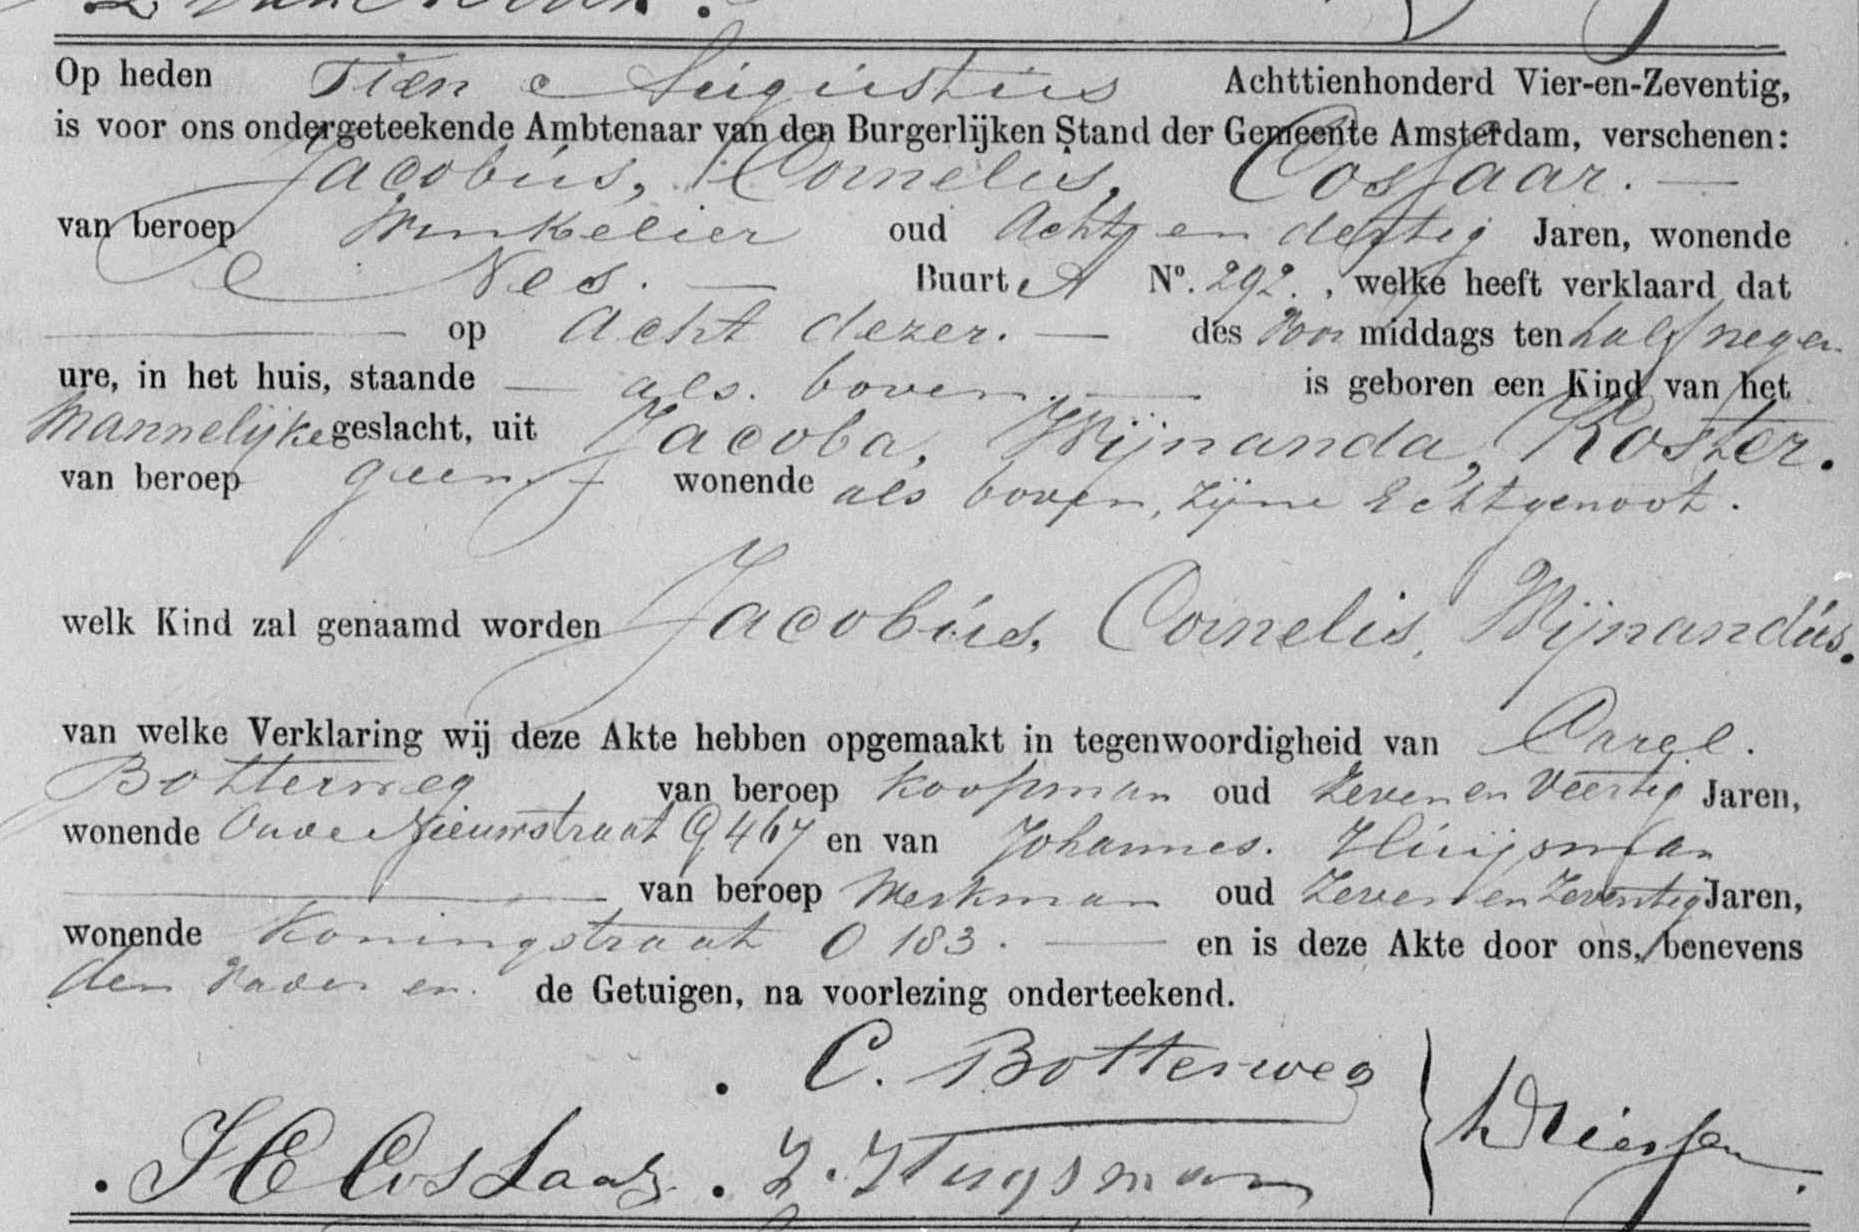 Op heden Tien Augustus Achttienhonderd Vier-en-Zeventig,
is voor ons ondergeteekende Ambtenaar van den Burgerlijken Stand der Gemeente Amsterdam, verschenen:
Jacobus, Cornelis, Cosfaar. —
van beroep Winkelier oud Acht en dertig Jaren, wonende
Nes. — Buurt A Nº. 292. , welke heeft verklaard dat
— op Acht dezer. — des Voor middags ten half negen
ure, in het huis, staande — als boven. — is geboren een Kind van het
Mannelijke geslacht, uit Jacoba, Wijnanda, Koster.
van beroep geen, wonende als boven, zijne Echtgenoot.
welk Kind zal genaamd worden Jacobus, Cornelis, Wijnandus.
van welke Verklaring wij deze Akte hebben opgemaakt in tegenwoordigheid van Carel.
Botterweg van beroep koopman oud zeven en Veertig Jaren,
wonende Oude Nieuwstraat G 467 en van Johannes. Huijsman
— van beroep Werkman oud zeven en zeventig Jaren,
wonende Koningstraat O 183. — en is deze Akte door ons, benevens
den Vader en de Getuigen, na voorlezing onderteekend.
C. Botterweg
J C Cosfaar. J. Huysman